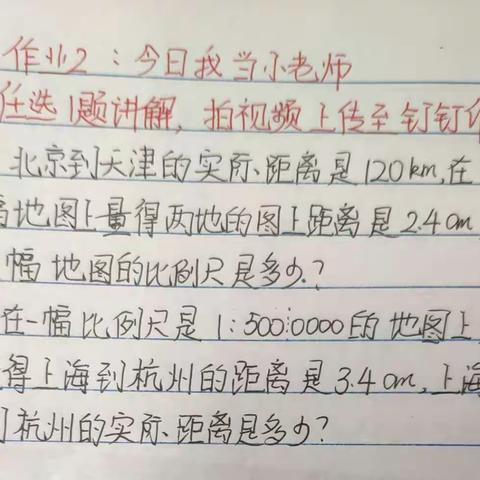 作业2：今日我当小老师
任选1题讲解，拍视频上传至钉钉
北京到天津的实际距离是120km，在
幅地图上量得两地的图上距离是2.4cm
幅地图的比例尺是多少？
在一幅比例尺是1:5000000的地图上
得上海到杭州的距离是3.4cm，上海
到杭州的实际距离是多少？